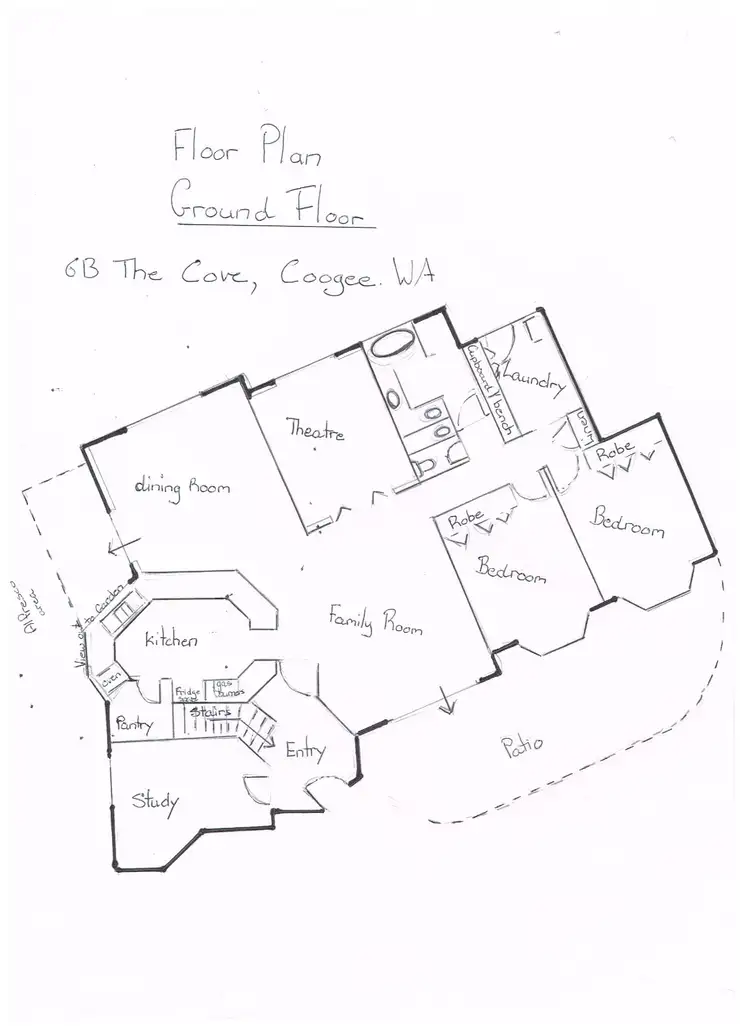 Floor Plan
Ground Floor
6B The Cove, Coogee. WA
Cupboard/bench
Laundry
Linen
Theatre
Robe
dining Room
Robe
Bedroom
Bedroom
Alfresco
area
View out to Garden
Family Room
Kitchen
oven
Fridge
gas
burners
Pantry
Stairs
Entry
Patio
Study